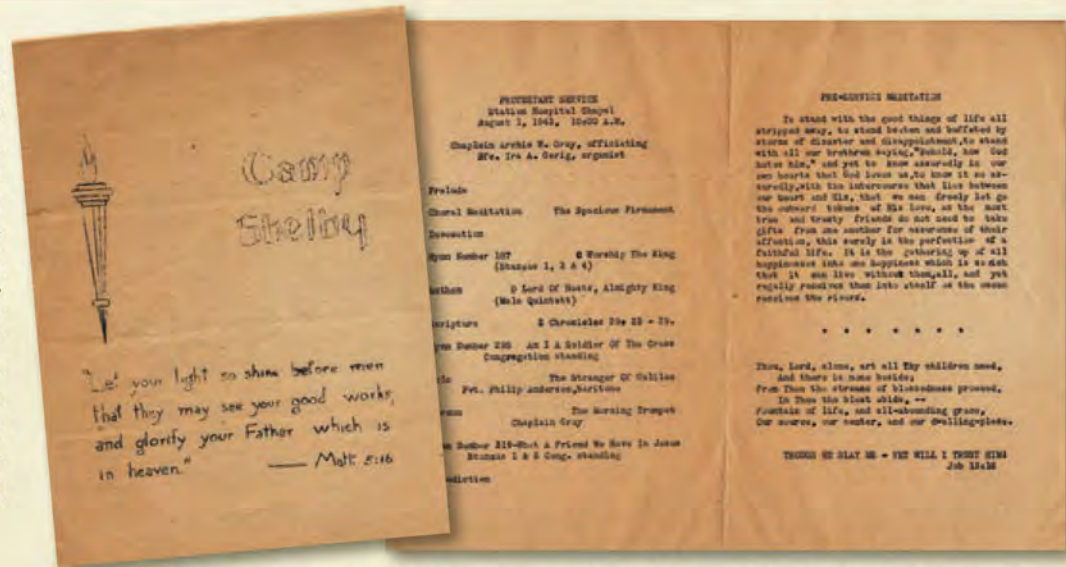 Camp
Shelby
"Let your light so shine before men
that they may see your good works,
and glorify your Father which is
in heaven."
— Matt 5:16
PROTESTANT SERVICE
Station Hospital Chapel
August 1, 10:00 A.M.
Chaplain Archie W. Gray, officiating
Ira A. Gerig, organist
Prelude
Choral Meditation The Spacious Firmament
Hymn Number O Worship The King
(Stanzas 1, & 4)
O Lord Of Hosts, Almighty King
(Male Quintett)
Chronicles
Number Am I A Soldier Of The Cross
Congregation standing
The Stranger Of Galilee
Pvt. Philip Anderson, baritone
The Morning Trumpet
Chaplain Gray
Number What A Friend We Have In Jesus
Stanzas 1 & Cong. standing
PRE-SERVICE MEDITATION
To stand with the good things of life all
stripped away, to stand beaten and buffeted by
storms of disaster and disappointment, to stand
with all our brethren saying, "Behold, how God
hates him," and yet to know assuredly in our
own hearts that God loves us, to know it so as-
suredly, with the intercourse that lies between
our heart and His, that we can freely let go
the outward tokens of His love, as the most
true and trusty friends do not need to take
gifts from one another for assurance of their
affection, this surely is the perfection of a
faithful life. It is the gathering up of all
happinesses into one happiness which is so rich
that it can live without them, all, and yet
regally receives them into itself as the ocean
receives the rivers.
* * * * * * *
Thou, Lord, alone, art all Thy children need,
And there is none beside;
From Thee the streams of blessedness proceed,
In Thee the blest abide, --
Fountain of life, and all-abounding grace,
Our source, our center, and our dwelling-place.
THOUGH HE SLAY ME - YET WILL I TRUST HIM
Job